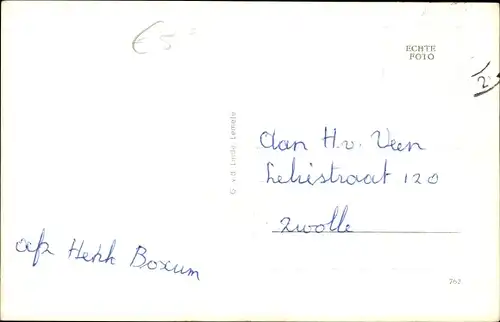 € 5
ECHTE
FOTO
2
G. v.d. Linde, Lemele
Aan H.v. Veen
Leliestraat 120
Zwolle
afz Henk Boxum
763